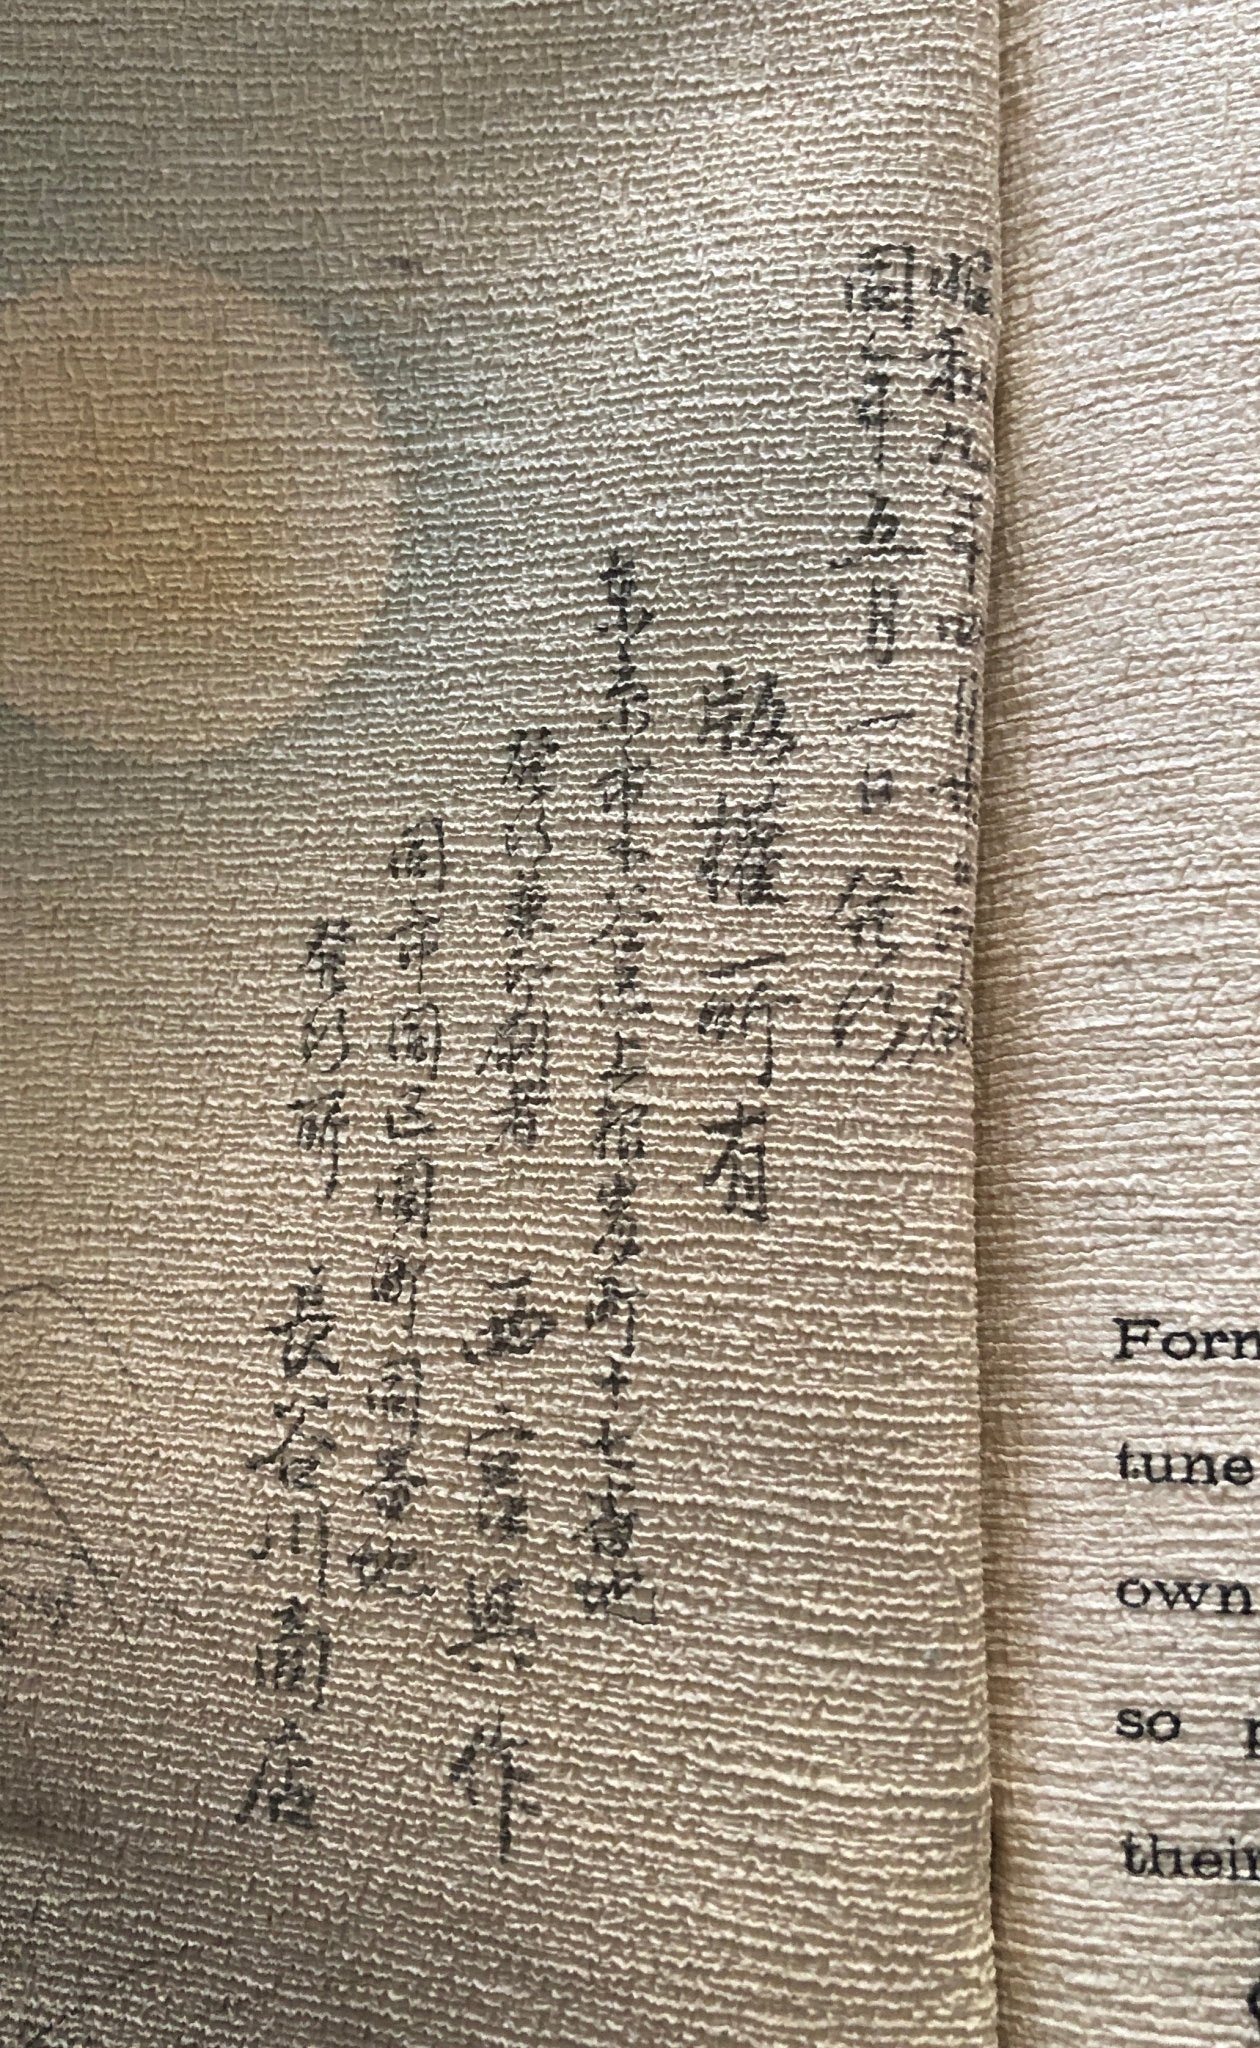 昭和九年四月廿日印刷
同年五月一日発行
版権所有
東京市下谷区上根岸町十七番地
発行兼印刷者 西宮與作
同市同区同町同番地
発行所 長谷川商店
Form
tune
own
so
their